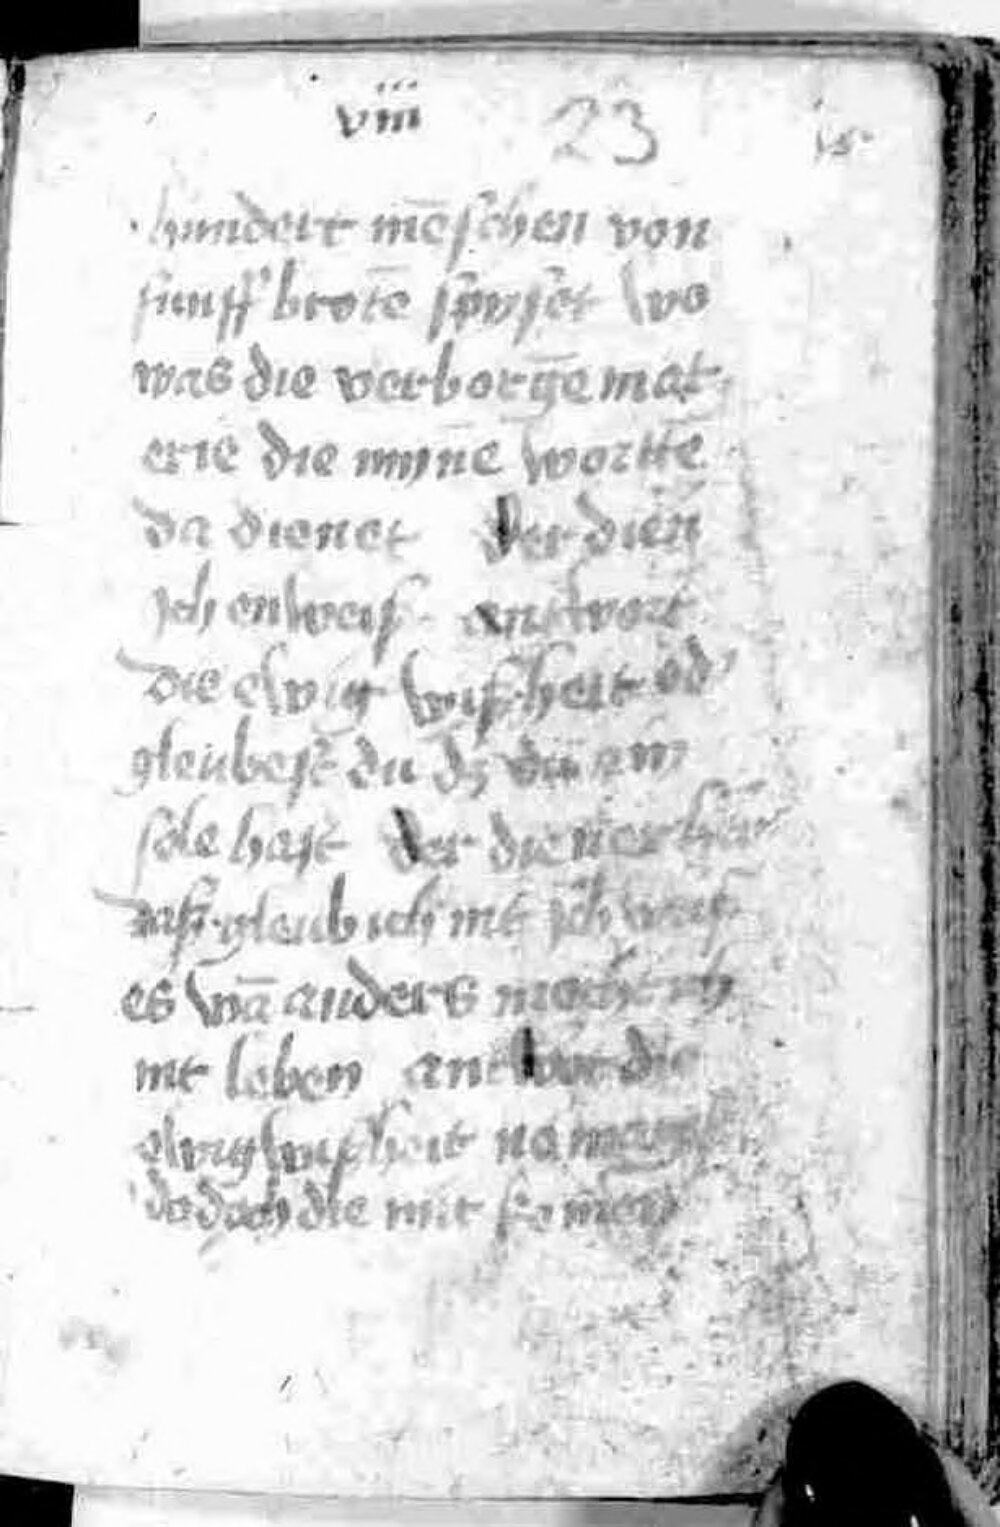 viii 23
hundert mēschen von
funff brotē spyset wo
was die verborgē mat
erie die mynē wortē
da dienet Der dien̄
ich enweis antwort
Die ewig wißheit od'
gleubest du dz du ein
sele hast Der diener
gleub ich nit ich weis
es wā anders mocht ich
nit leben antwort die
ewig wißheit
die mit